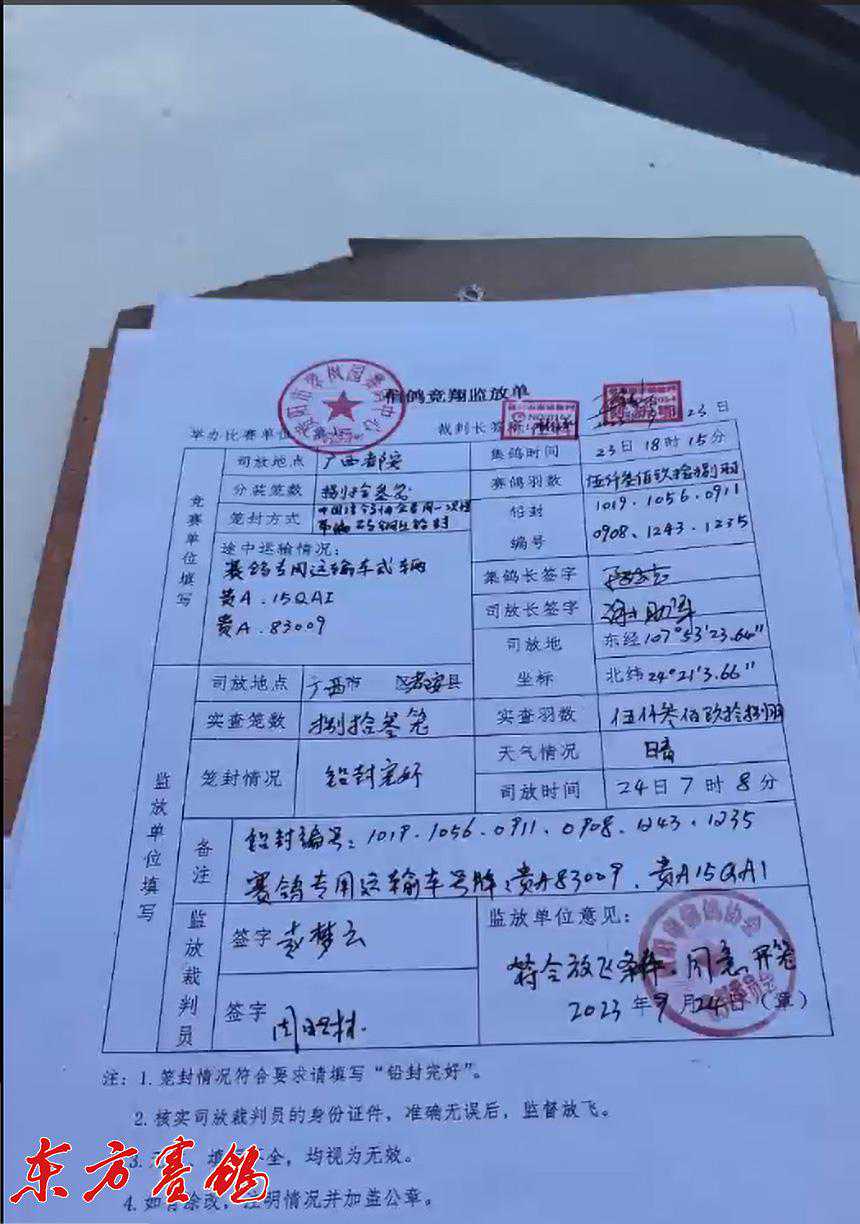 信鸽竞翔监放单
举办比赛单位
裁判长签名:
23日
竞赛单位填写
司放地点 广西都安
集鸽时间 23日18时15分
分装笼数 捌拾叁笼
赛鸽羽数 伍仟叁佰玖拾捌羽
笼封方式
铅封编号 1019.1056.0911
0908、1243.1235
途中运输情况:
赛鸽专用运输车式辆
贵A.15QA1
贵A.83009
集鸽长签字
司放长签字
司放地坐标 东经107°53'23.64"
北纬24°21'3.66"
监放单位填写
司放地点 广西市 区都安县
实查笼数 捌拾叁笼
实查羽数 伍仟叁佰玖拾捌羽
笼封情况 铅封完好
天气情况 晴
司放时间 24日7时8分
备注
铅封编号:1019.1056.0911、0908.1243.1235
赛鸽专用运输车号牌:贵A83009、贵A15QA1
监放裁判员
签字 彭梦云
签字
监放单位意见:
符合放飞条件、同意开笼
2023年9月24日(章)
注:1.笼封情况符合要求请填写“铅封完好”。
2.核实司放裁判员的身份证件,准确无误后,监督放飞。
3. 全,均视为无效。
4.如有涂改,注明情况并加盖公章。
东方赛鸽